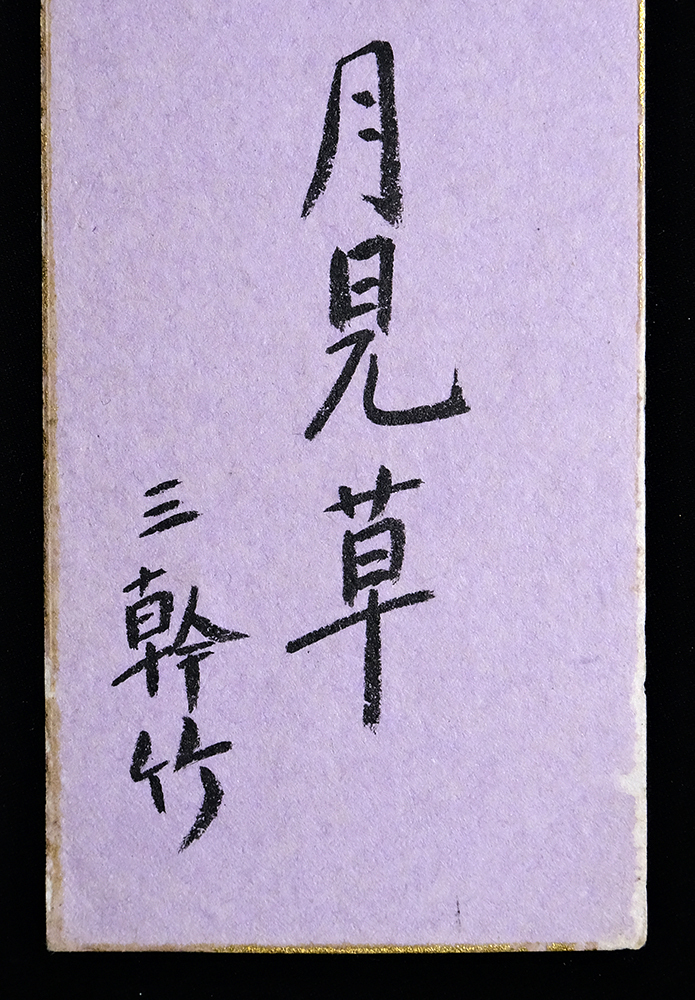 月見草
三幹竹